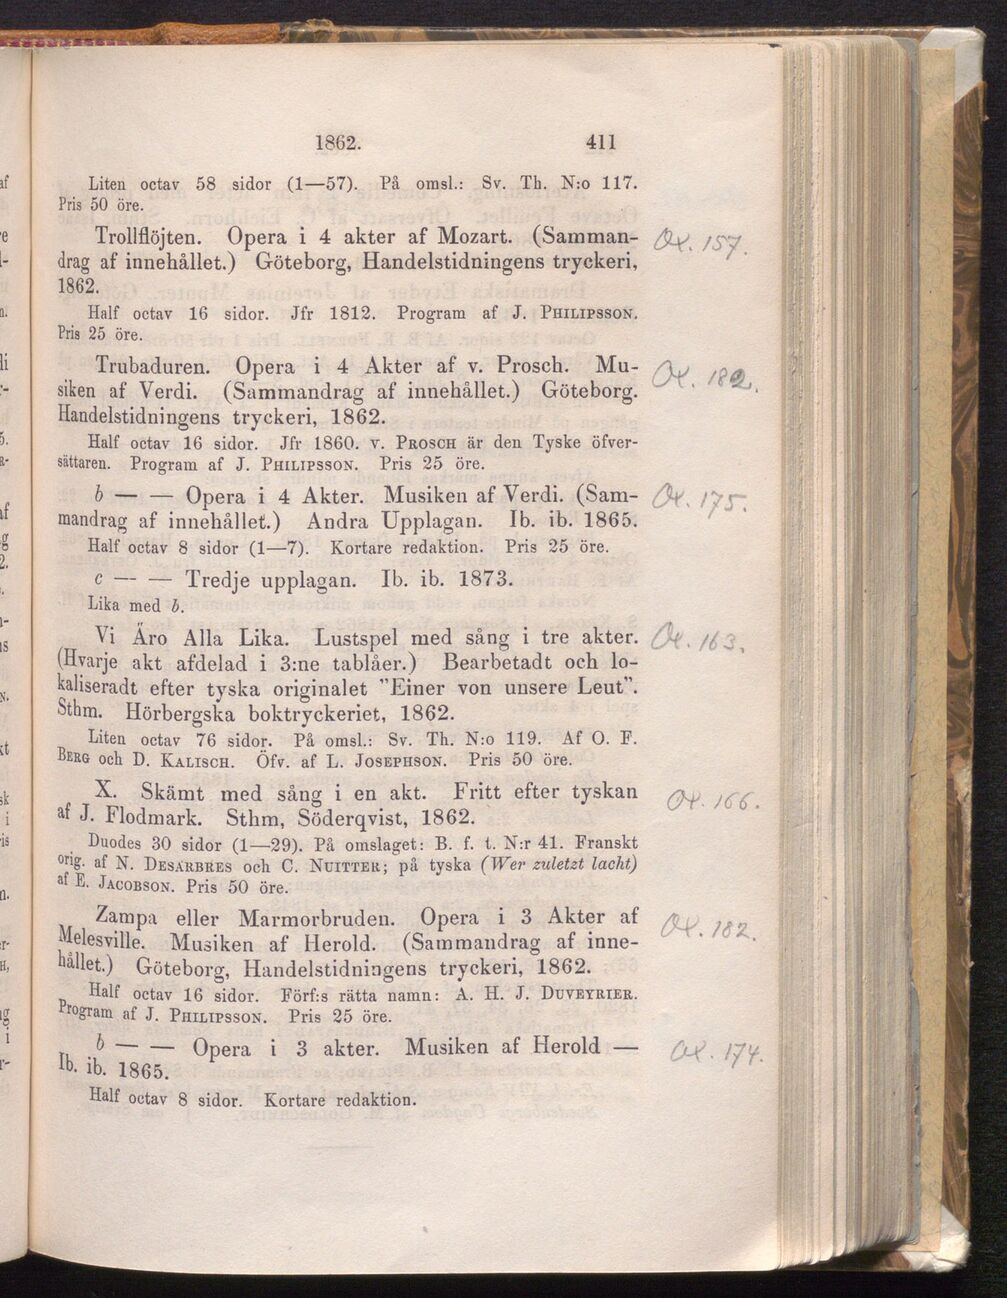 1862. 411
Liten octav 58 sidor (1—57). På omsl.: Sv. Th. N:o 117.
Pris 50 öre.
Trollflöjten. Opera i 4 akter af Mozart. (Samman-
drag af innehållet.) Göteborg, Handelstidningens tryckeri,
1862.
Ox. 157.
Half octav 16 sidor. Jfr 1812. Program af J. Philipsson.
Pris 25 öre.
Trubaduren. Opera i 4 Akter af v. Prosch. Mu-
siken af Verdi. (Sammandrag af innehållet.) Göteborg.
Handelstidningens tryckeri, 1862.
Ox. 182.
Half octav 16 sidor. Jfr 1860. v. Prosch är den Tyske öfver-
sättaren. Program af J. Philipsson. Pris 25 öre.
b — — Opera i 4 Akter. Musiken af Verdi. (Sam-
mandrag af innehållet.) Andra Upplagan. Ib. ib. 1865.
Ox. 175.
Half octav 8 sidor (1—7). Kortare redaktion. Pris 25 öre.
c — — Tredje upplagan. Ib. ib. 1873.
Lika med b.
Vi Äro Alla Lika. Lustspel med sång i tre akter.
(Hvarje akt afdelad i 3:ne tablåer.) Bearbetadt och lo-
kaliseradt efter tyska originalet "Einer von unsere Leut".
Sthm. Hörbergska boktryckeriet, 1862.
Ox. 163.
Liten octav 76 sidor. På omsl.: Sv. Th. N:o 119. Af O. F.
Berg och D. Kalisch. Öfv. af L. Josephson. Pris 50 öre.
X. Skämt med sång i en akt. Fritt efter tyskan
af J. Flodmark. Sthm, Söderqvist, 1862.
Ox. 166.
Duodes 30 sidor (1—29). På omslaget: B. f. t. N:r 41. Franskt
orig. af N. Desarbres och C. Nuitter; på tyska (Wer zuletzt lacht)
af E. Jacobson. Pris 50 öre.
Zampa eller Marmorbruden. Opera i 3 Akter af
Melesville. Musiken af Herold. (Sammandrag af inne-
hållet.) Göteborg, Handelstidningens tryckeri, 1862.
Ox. 182.
Half octav 16 sidor. Förf:s rätta namn: A. H. J. Duveyrier.
Program af J. Philipsson. Pris 25 öre.
b — — Opera i 3 akter. Musiken af Herold —
Ib. ib. 1865.
Ox. 174.
Half octav 8 sidor. Kortare redaktion.